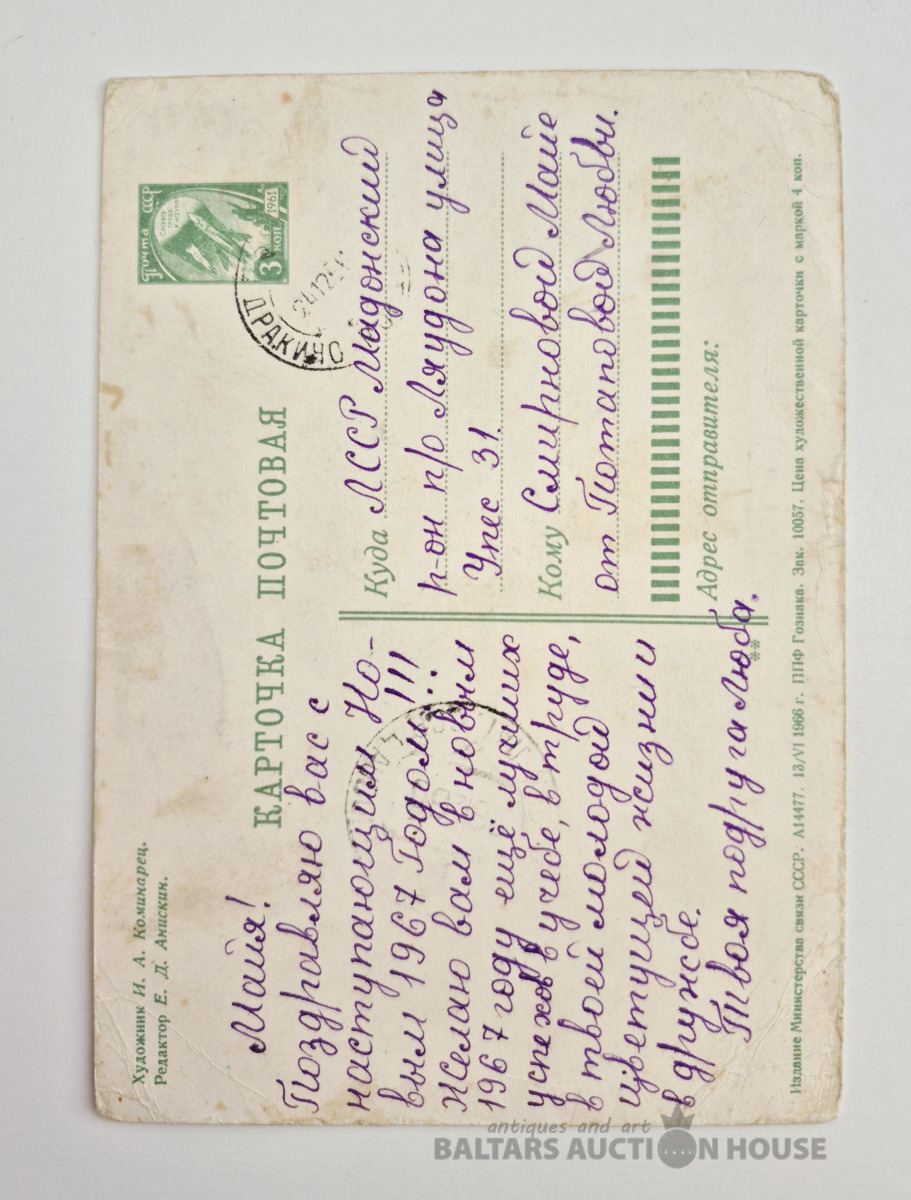 Художник И. А. Коминарец.
Редактор Е. Д. Анискин.
КАРТОЧКА ПОЧТОВАЯ
ПОЧТА СССР
3 КОП.
1961
ДРАКИНО
24 12
Майя!
Поздравляю вас с
наступающим Но-
вым 1967 Годом!!!
Желаю вам в новым
1967 году ещё лучших
успехов в учебе, в труде,
в твоей молодой
цветущей жизни и
в дружбе.
Твоя подруга Люба.
Куда ЛССР Мадонский
р-он п/о Ляудона улица
Упес 31.
Кому Смирновой Майе
от Потаповой Любви.
Адрес отправителя:
Издание Министерства связи СССР. А14477. 13/VI 1966 г. ППФ Гознака. Зак. 10057. Цена художественной карточки с маркой 4 коп.
antiques and art
BALTARS AUCTION HOUSE